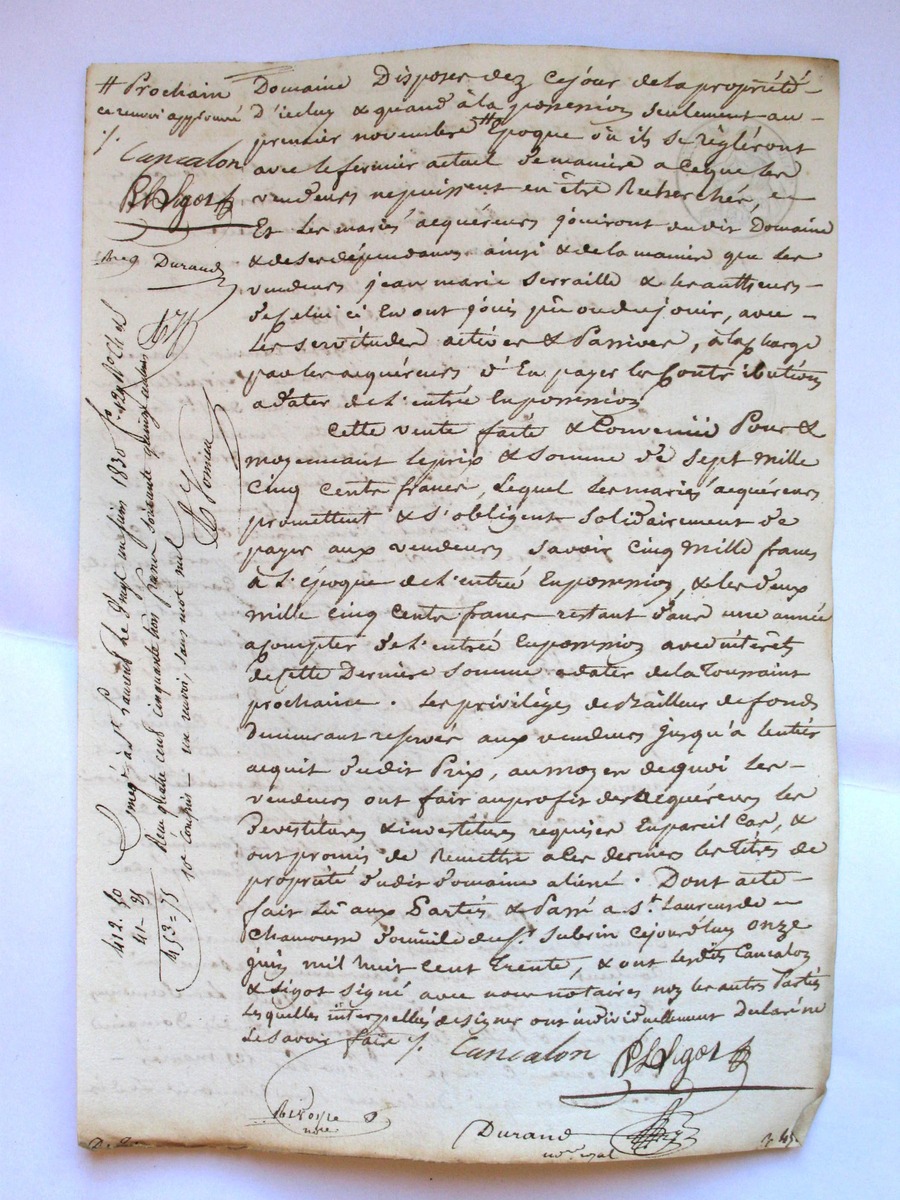 # Prochain
ce renvoi approuvé
Cancalon
PLSigot
Durand
Domaine Disposer dez ce jour de la propriété
d'icelui & quand à la possession seulement au
premier novembre # Epoque où ils se règléront
avec le fermier actuel de manière a ce que les
vendeurs ne puissent en être Recherchés, en
Et Les mariés acquéreurs jouiront dudit Domaine
& de ses dépendances ainsi & de la manière que les
vendeurs jean marie Serraille & les autheurs
de celui ci En ont jouis pû ou du jouir, avec
Les servitudes actives & Passives, à la charge
par les acquéreurs d'En payer les Contributions
a dater de L'entrée En possession
Cette vente faite & Convenüe Pour &
moyennant le prix & somme de Sept mille
Cinq Cents francs, Lequel Les mariés acquéreurs
promettent & s'obligent Solidairement de
payer aux vendeurs savoir Cinq mille francs
à L'époque de L'entrée En possession, & les deux
mille cinq cents francs restant dans une année
a compter de L'entrée En possession avec intérêts
de cette Dernière somme a dater de la Toussaint
prochaine. Les privilèges de Bailleur de fonds
demeurant reservés aux vendeurs jusqu'à L'entier
acquit dudit Prix, au moyen de quoi Les
vendeurs ont fait au profit des acquéreurs les
Devestitures & investitures requises En pareil Cas, &
ont promis de Remettre a Ces derniers les titres de
propriété dudit domaine aliéné. Dont acte
fait Lû aux Parties & Passé a St. Laurent de
Chamousset domicile du Sr. Subrin Cejourd'huy onze
juin mil huit cent trente, & ont Lesdits Cancalon
& Sigot signé avec nous notaires non les autres Parties
Lesquelles interpellées de signer ont individuellement Déclaré ne
Le savoir faire
Cancalon PLSigot
Durand
Enreg. à St. Laurent Le Vingt un juin 1830 fo. 129 Ro.
Reçu quatre cent cinquante trois francs soixante quinze centimes
10e Compris - un renvoi, sans mot nul
412. 50
41 - 25
453 = 75